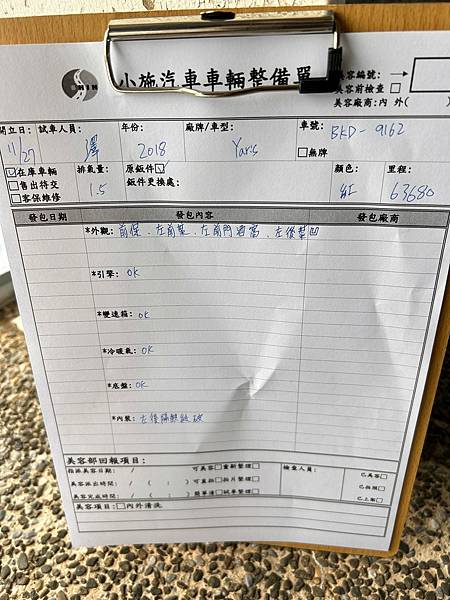 小施汽車車輛整備單
美容編號：
美容前檢查
美容廠商：內 外(
開立日：試車人員： 年份： 廠牌/車型： 車號：
11/27 澤 2018 Yaris BKD-9162
無牌
在庫車輛 排氣量： 原鈑件 顏色： 里程：
售出待交 1.5 鈑件更換處： 紅 63680
客保維修
發包日期 發包內容 發包廠商
*外觀：前保、左前葉、左前門
*引擎：OK
*變速箱：OK
*冷暖氣：OK
*底盤：OK
*內裝：左後 破
美容部回報項目：
指派美容日期： / 可美容 重新整理 檢查人員： 已美容
美容派出時間： / ( : ) 可直拍 拍片整理 已拍照
美容完成時間： / ( : ) 簡單清 試車整理 已上架
美容項目： 內外清洗